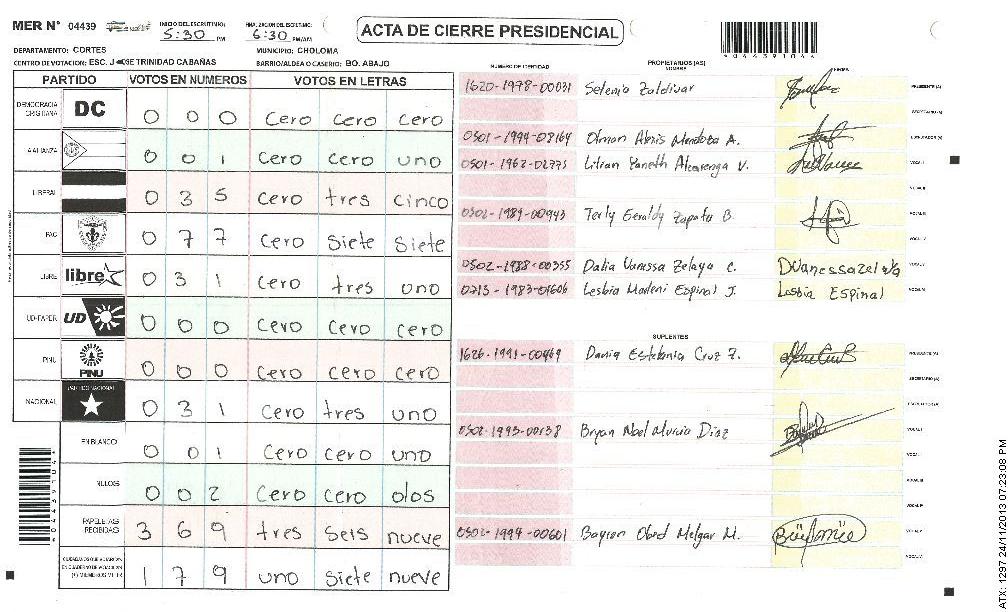 MER Nº 04439
INICIO DEL ESCRUTINIO: 5:30 PM
FINALIZACION DEL ESCRUTINIO: 6:30 PM/AM
ACTA DE CIERRE PRESIDENCIAL
DEPARTAMENTO: CORTES
MUNICIPIO: CHOLOMA
CENTRO DE VOTACION: ESC. JOSE TRINIDAD CABAÑAS
BARRIO/ALDEA O CASERIO: BO. ABAJO
PARTIDO VOTOS EN NUMEROS VOTOS EN LETRAS
DEMOCRACIA CRISTIANA DC 0 0 0 Cero Cero Cero
ALIANZA 0 0 1 Cero Cero uno
LIBERAL 0 3 5 Cero tres cinco
PAC 0 7 7 Cero Siete Siete
LIBRE libre 0 3 1 Cero tres uno
UD-FAPER UD 0 0 0 Cero Cero Cero
PINU PINU 0 0 0 Cero Cero Cero
NACIONAL PARTIDO NACIONAL 0 3 1 Cero tres uno
EN BLANCO 0 0 1 Cero Cero uno
NULOS 0 0 2 Cero Cero dos
PAPELETAS RECIBIDAS 3 6 9 tres Seis nueve
1 7 9 uno Siete nueve
0443910 4
NUMERO DE IDENTIDAD PROPIETARIOS (AS) NOMBRE FIRMA
1620-1978-00031 Selenia Zaldivar PRESIDENTE (A)
SECRETARIO (A)
0501-1994-08164 Olman Alexis Mendoza A. ESCRUTADOR (A)
0501-1962-02775 Litran Yaneth Alvarenga V. VOCAL I
VOCAL II
0502-1989-00943 Terly Geraldy Zapata B. VOCAL III
VOCAL IV
0502-1988-00355 Dalia Vanessa Zelaya C. DVanessazelaya VOCAL V
0713-1983-01606 Lesbia Marleni Espinal J. Lesbia Espinal VOCAL VI
SUPLENTES
1626-1991-00469 Dania Estefania Cruz Z. PRESIDENTE (A)
SECRETARIO (A)
ESCRUTADOR (A)
0502-1993-00138 Bryan Noel Murcia Diaz VOCAL I
VOCAL II
VOCAL III
VOCAL IV
0502-1994-00601 Bayron Obed Melgar M. VOCAL V
VOCAL VI
ATX: 1297 24/11/2013 07:23:08 PM